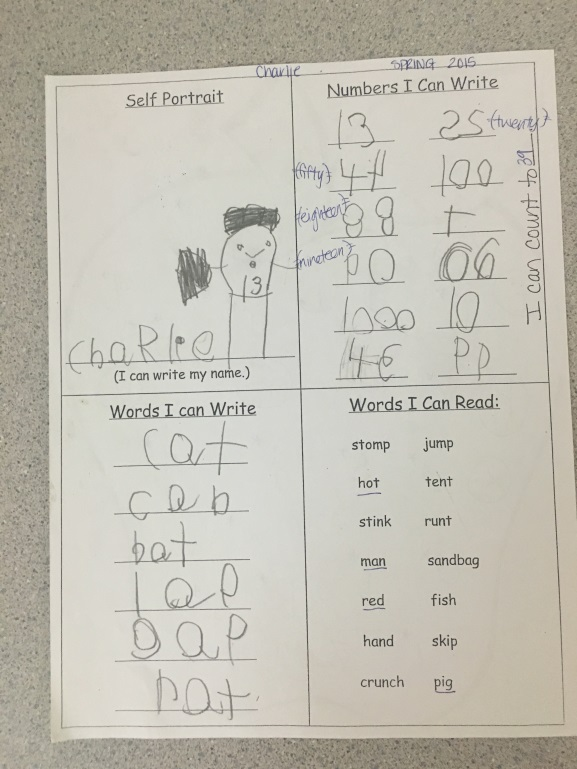 Charlie SPRING 2015
Self Portrait
13
ChaRlie
(I can write my name.)
Numbers I Can Write
13 25 {twenty}
{fifty} 44 100
{eighteen} 88 t
{nineteen} 90 06
1000 10
46 PP
I can count to 39
Words I can Write
cat
cab
bat
lap
gap
rat
Words I Can Read:
stomp jump
hot tent
stink runt
man sandbag
red fish
hand skip
crunch pig